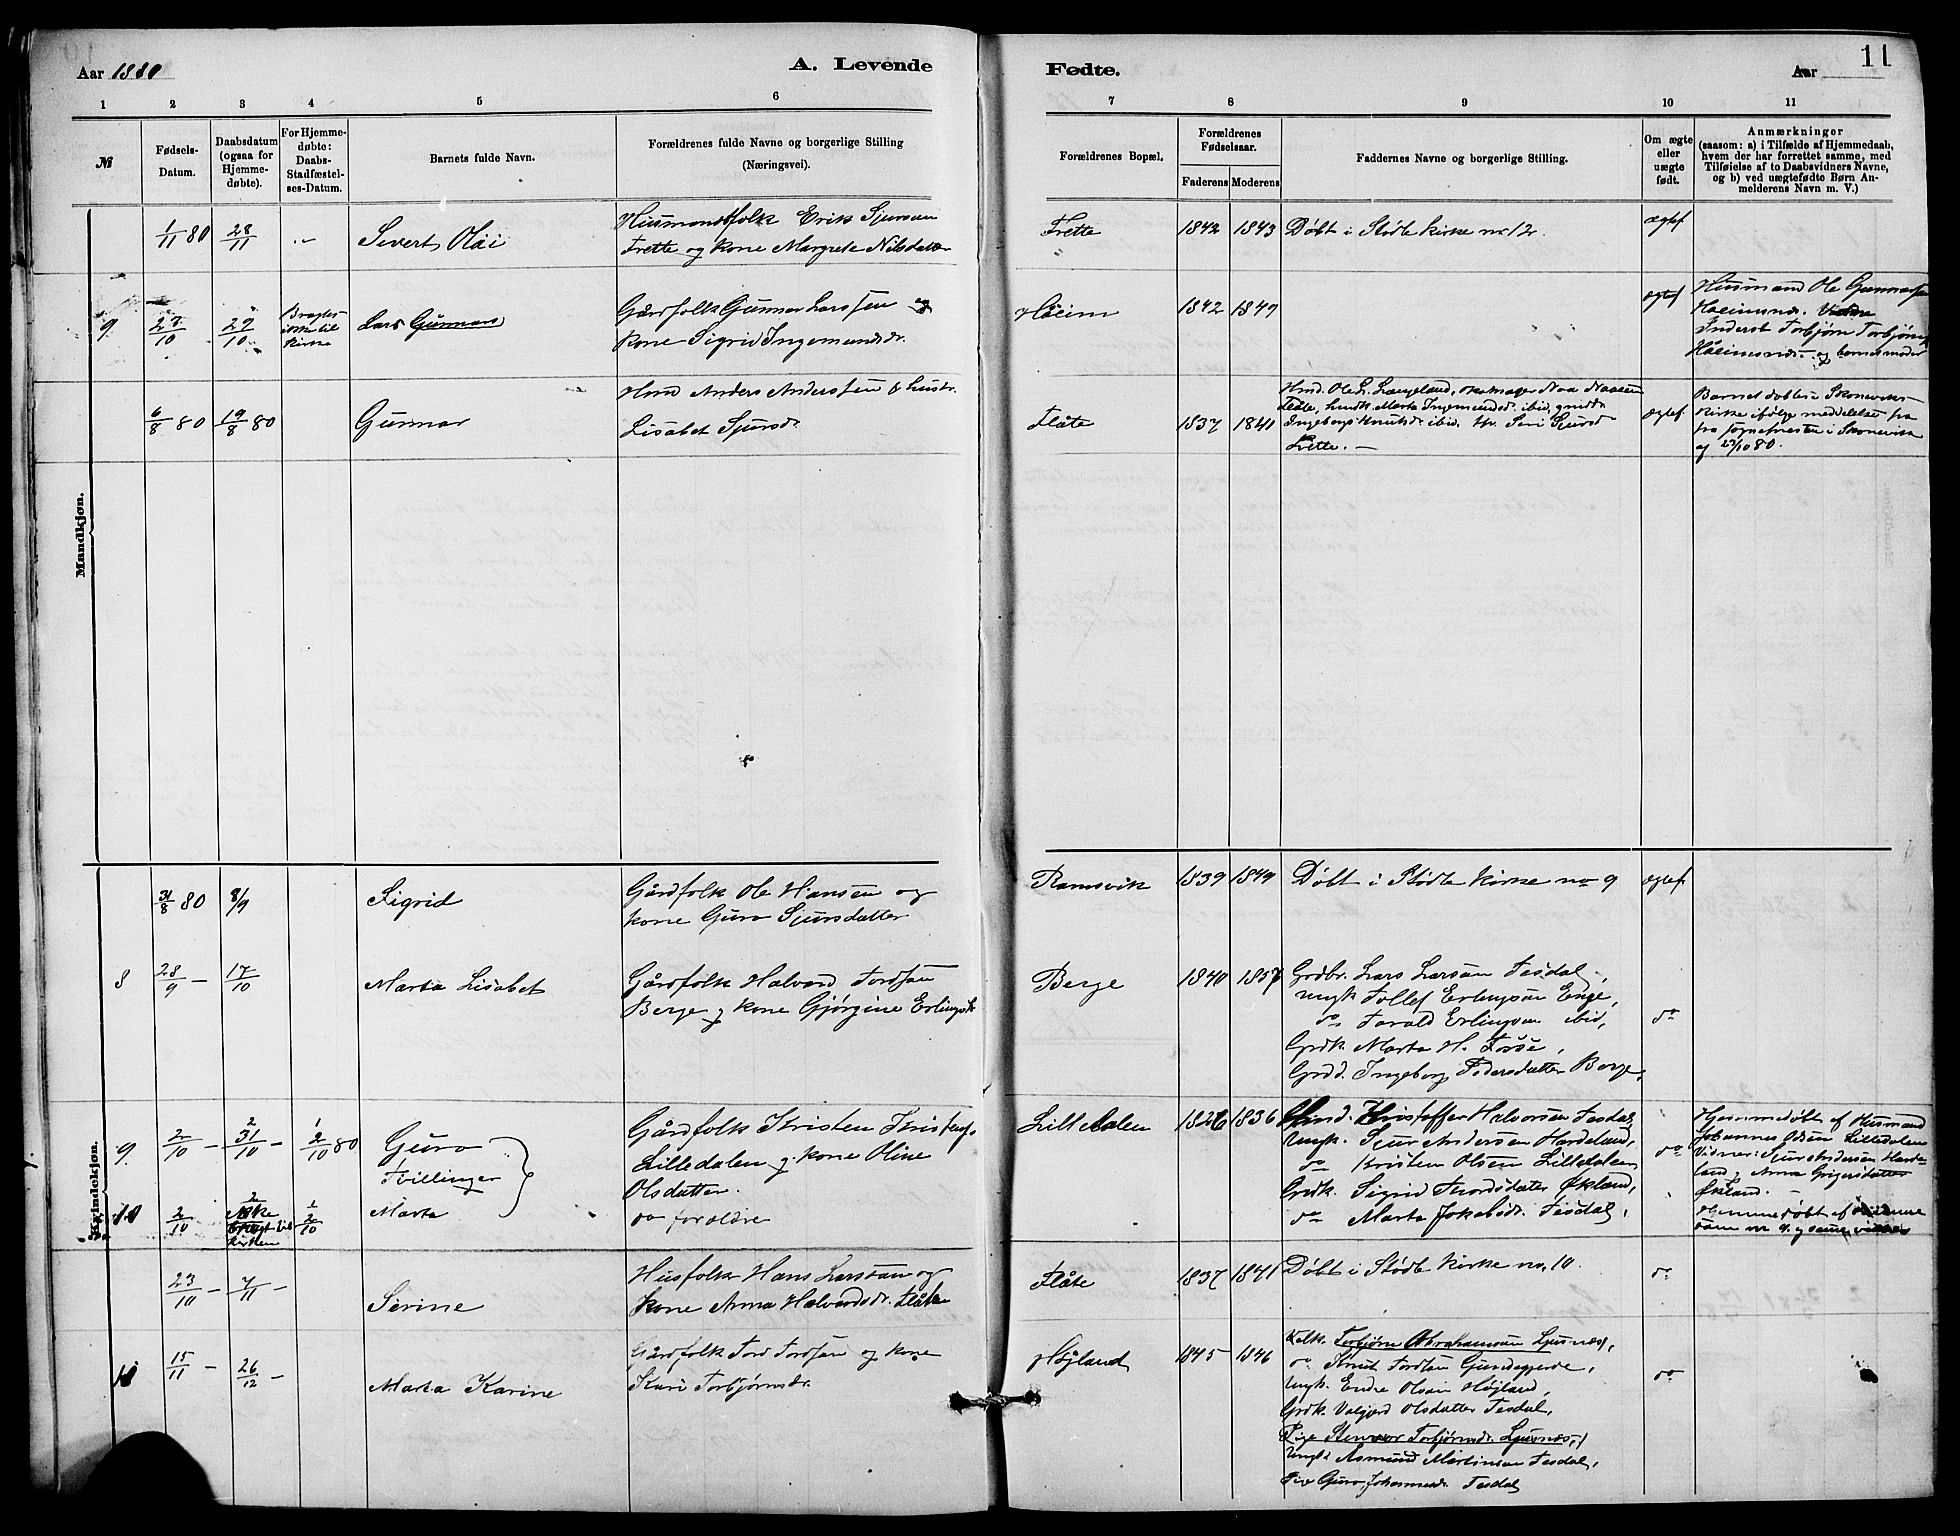 Aar 1880
A. Levende
Fødte.
Aar
11
1
2
3
4
5
6
7
8
9
10
11
№
Fødsels-
Datum.
Daabsdatum
(ogsaa for
Hjemme-
døbte).
For Hjemme-
døbte:
Daabs-
Stadfæstel-
ses-Datum.
Barnets fulde Navn.
Forældrenes fulde Navne og borgerlige Stilling
(Næringsvei).
Forældrenes Bopæl.
Forældrenes
Fødselsaar.
Faderens
Moderens
Faddernes Navne og borgerlige Stilling.
Om ægte
eller
uægte
født.
Anmærkninger
(saasom: a) i Tilfælde af Hjemmedaab,
hvem der har forrettet samme, med
Tilføielse af to Daabsvidners Navne,
og b) ved uægtefødte Børn An-
melderens Navn m. V.)
Mandkjøn.
1/11 80
28/11
Severt Olai
Husmandsfolk Erik Sjursen
Frette og kone Margrete Nilsdatter
Frette
1842
1843
Døbt i Stødle kirke nr 12.
ægtef
9
27/10
29/10
Bragtes
ikke til
kirke
Lars Gunnars
Gårdfolk Gunnar Larssen og
kone Sigrid Ingemundsdr.
Håeim
1842
1847
ægtef
Husmand Ole Gunnarsen
Håeimsnds.
Inderst Torbjørn Torbjørns
Håeimsnds. og barnets moder
6/8 80
19/8 80
Gunnar
Hmd Anders Anderssen & hustr.
Lisabet Sjursdr
Flåte
1837
1841
Hmd. Ole L. Længeland,
hmdk. Marta Ingemundsdr. ibid,
Ingeborg Knutsdr ibid. Siri Sjursd
Frette. —
ægtef
Barnet døbtes i Skonevik
kirke ifølge meddelelse fra
fra sognepresten i Skonevik
af 23/10 80.
Kvindekjøn.
31/8 80
8/9
Sigrid
Gårdfolk Ole Hansen og
kone Guro Sjursdatter
Ramsvik
1839
1849
Døbt i Stødle kirke no 9
ægtef.
8
28/9 —
17/10
Marta Lisabet
Gårdfolk Halvard Tordsen
Berge og kone Gjørgine Erlingsdr
Berge
1840
1857
Grdbr. Lars Larsen Tesdal,
Ungk Tollef Erlingsen Enge,
do Torald Erlingsen ibid,
Grdk. Marta H. Fosse,
Grdd. Ingeborg Pedersdatter Berge,
do
9
2/10 —
31/10 —
2/10 80
Guro
Tvillinger
Gårdfolk Kristen Kristens.
Lilledalen og kone Oline
Olsdatter.
Lilledalen
1826
1836
Hmd. Kristoffer Halvorsen Tesdal,
Ungk. Sjur Andersen Hardeland,
do Kristen Olsen Lilledalen,
Grdk. Sigrid Tordsdater Økland,
do Marta Jakobsdr. Tesdal,
do
Hjemmedøbt af Husmand
Johannes Olsen Lilledalen
Vidner: Sjur Andersen Harde-
land og Anna Grigersdatter
Økland.
10
2/10
Ikke
bragt til
kirken
2/10
Marta
do foraldre
Hjemmedøbt af
som nr 9. og samme vidner
23/10 —
7/11 —
Serine
Husfolk Hans Larssen og
kone Anna Halvardsdr. Flåten
Flåte
1837
1841
Døbt i Stødle kirke no. 10.
do
11
15/11 —
26/12 —
Marta Karine
Gårdfolk Tord Tordsen og kone
Kari Torbjørnsdr.
Højland
1845
1846
Torbjørn Abrahamsen Ljusnæs,
do Knut Tordsen Gundegjerde,
Ungk. Endre Olsen Højland,
Grdk. Valgjerd Olsdatter Tesdal,
Pige Stenvor Torbjørnsdr. Ljusnæs,
Ungk Asmund Martinsen Tesdal,
Pige Guro Johannesdr. Tesdal
do